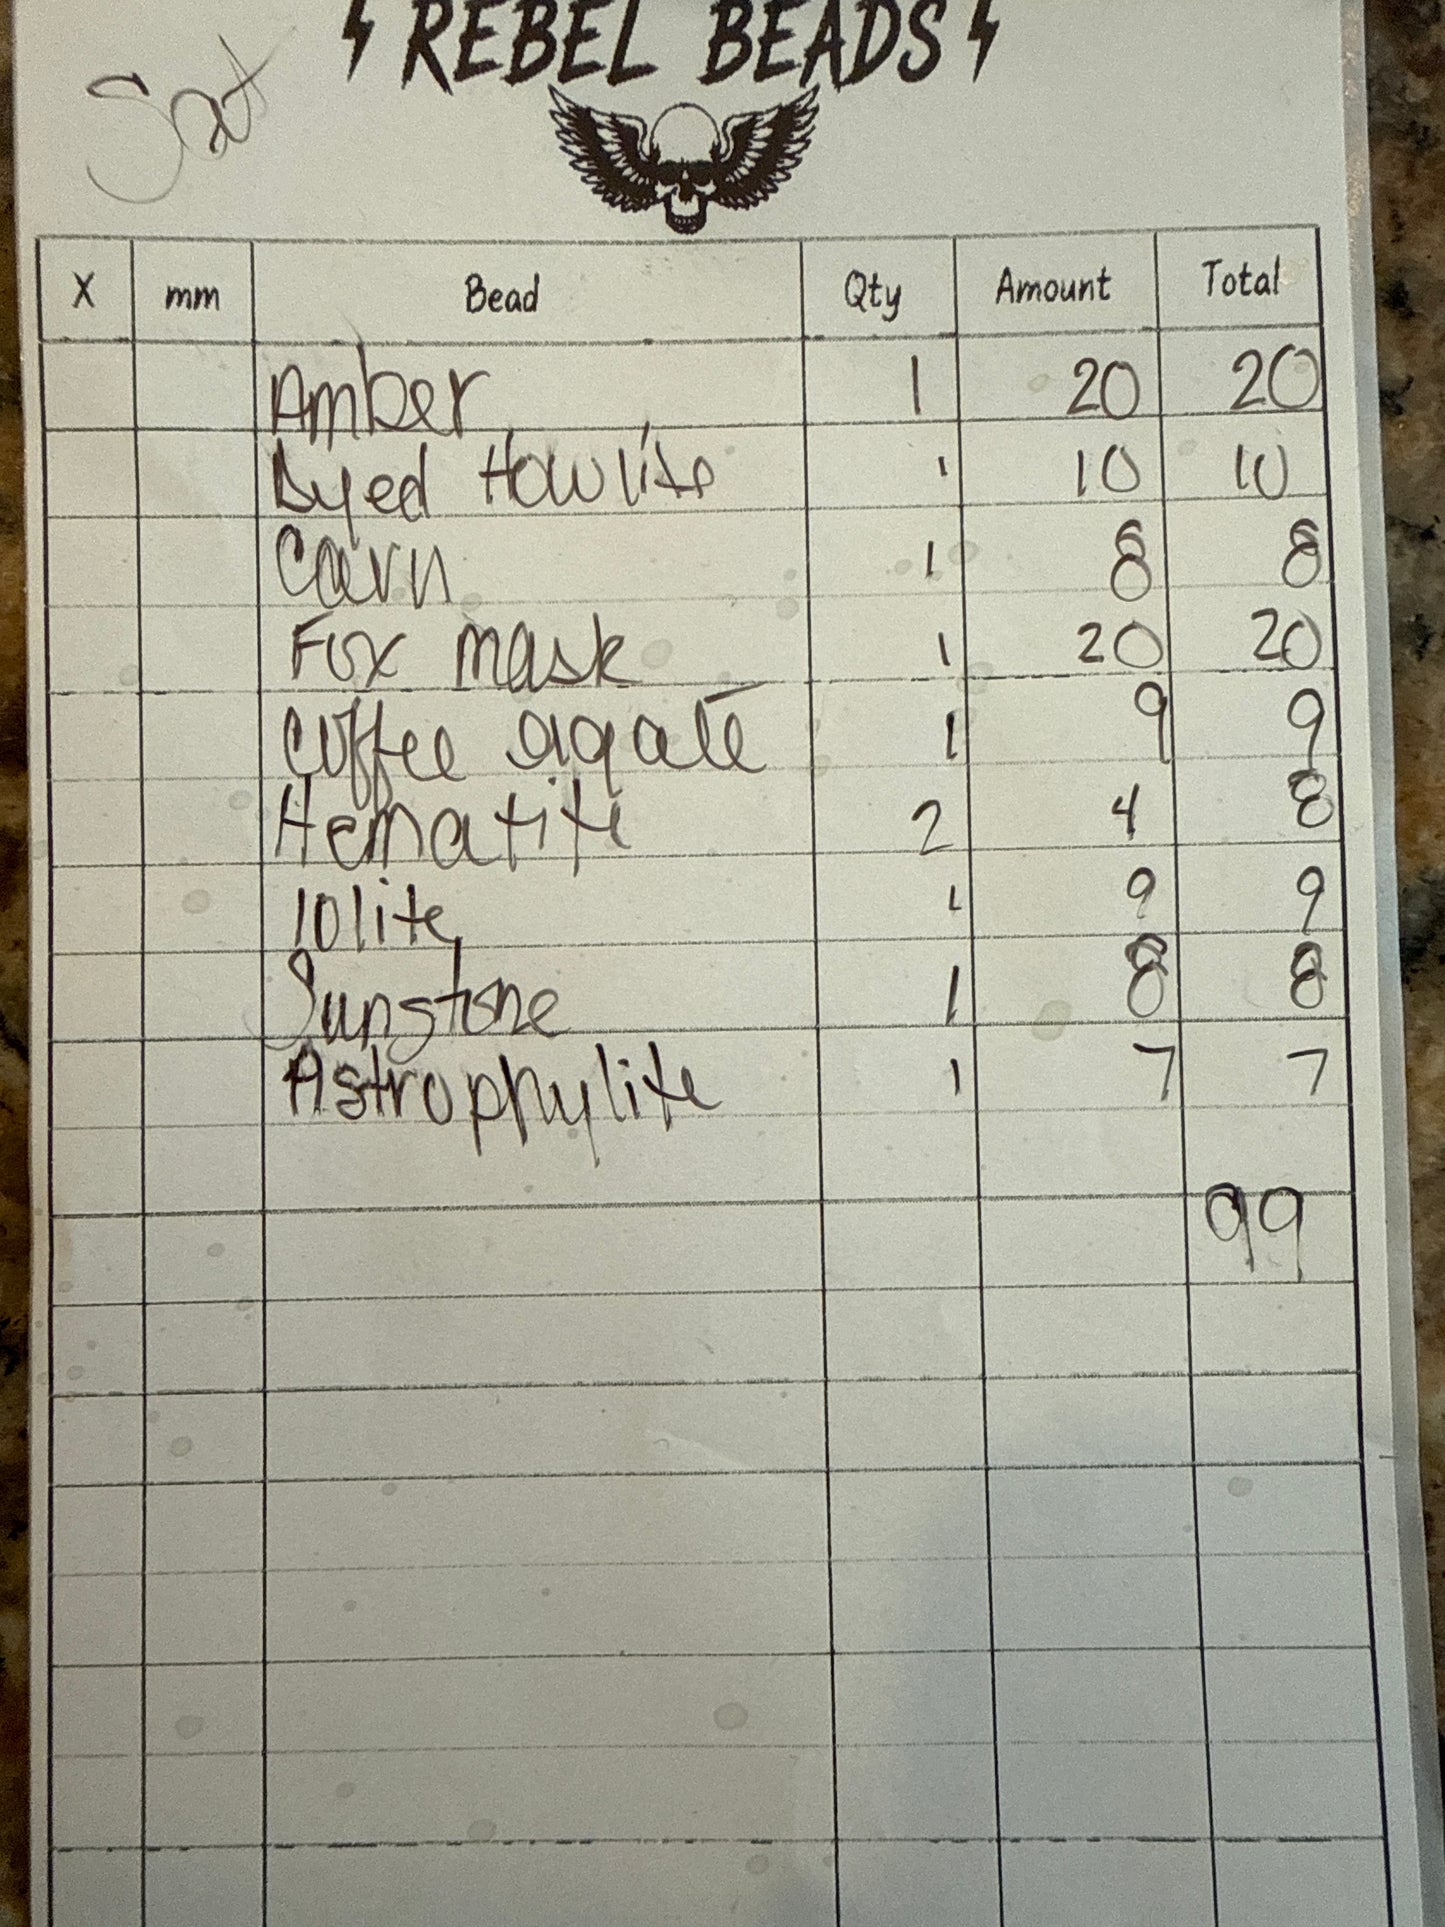 REBEL BEADS
Sat
X mm Bead Qty Amount Total
Amber 1 20 20
Dyed Howlite 1 10 10
Carn 1 8 8
Fox mask 1 20 20
Coffee agate 1 9 9
Hematite 2 4 8
Iolite 1 9 9
Sunstone 1 8 8
Astrophylite 1 7 7
99